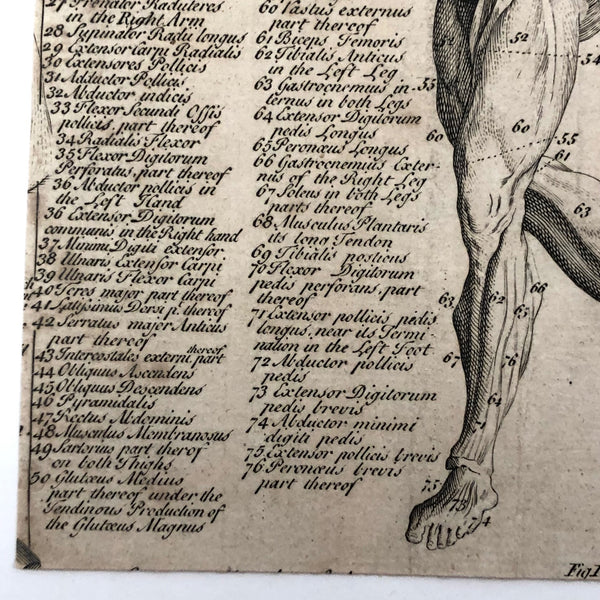 27 Pronator Raduteres
in the Right Arm
28 Supinator Radii longus
29 Extensor Carpi Radialis
30 Extensores Pollicis
31 Adductor Pollicis
32 Abductor indicis
33 Flexor Secundi Ossis
pollicis, part thereof
34 Radialis Flexor
35 Flexor Digitorum
Perforatus, part thereof
36 Abductor pollicis in
the Left Hand
36 Extensor Digitorum
communis in the Right hand
37 Minimi Digiti extensor
38 Ulnaris Extensor Carpi
39 Ulnaris Flexor Carpi
40 Teres major part thereof
41 Latissimus Dorsi p. thereof
42 Serratus major Anticus
part thereof
43 Intercostales externi, part thereof
44 Obliquus Ascendens
45 Obliquus Descendens
46 Pyramidalis
47 Rectus Abdominis
48 Musculus Membranosus
49 Sartorius part therof
on both Thighs
50 Glutœus Medius
part thereof under the
Tendinous Production of
the Glutœus Magnus
60 Vastus externus
part thereof
61 Biceps Femoris
62 Tibialis Anticus
in the Left Leg
63 Gastrocnemius in
ternus in both Legs
64 Extensor Digitorum
pedis Longus
65 Peronœus Longus
66 Gastrocnemius Exter-
nus of the Right Leg
67 Soleus in both Legs
parts thereof
68 Musculus Plantaris
its long Tendon
69 Tibialis posticus
70 Flexor Digitorum
pedis perforans, part
thereof
71 Extensor pollicis pedis
longus, near its Termi-
nation in the Left Foot
72 Abductor pollicis
pedis
73 Extensor Digitorum
pedis brevis
74 Abductor minimi
digiti pedis
75 Extensor pollicis brevis
76 Peronœus brevis
part thereof
52
54
55
60
60
55
61
63
66
63
62
65
67
75
64
75
73
74
Fig